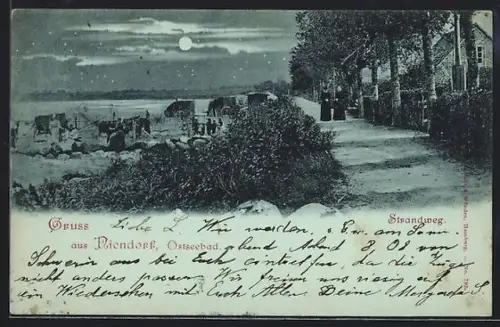 Gruss
aus Niendorf, Ostseebad.
Strandweg.
Liebe L. Wir werden, am Sonn.
abend Abend 8,08 von
Schwerin aus bei Euch eintreffen, da die Züge
nicht anders passen. Wir freuen uns riesig auf
ein Wiedersehen mit Euch Allen. Deine Margarete S.